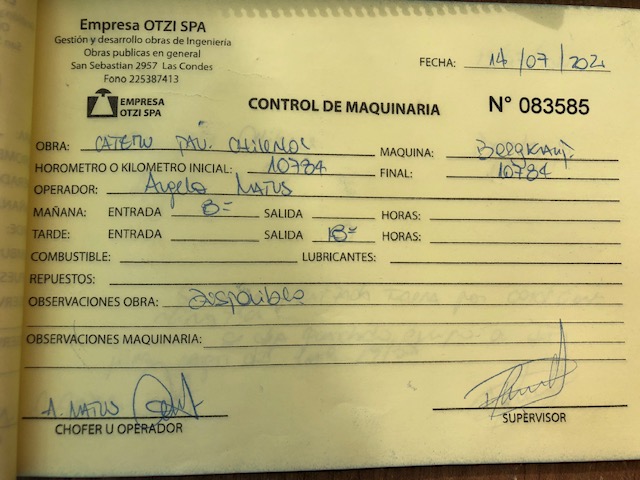 Empresa OTZI SPA
Gestión y desarrollo obras de Ingeniería
Obras publicas en general
San Sebastian 2957 Las Condes
Fono 225387413
FECHA: 14/07/2021
EMPRESA
OTZI SPA
CONTROL DE MAQUINARIA N° 083585
OBRA: MAQUINA:
HOROMETRO O KILOMETRO INICIAL: 10784 FINAL: 10784
OPERADOR: Angelo MATUS
MAÑANA: ENTRADA 8= SALIDA HORAS:
TARDE: ENTRADA SALIDA 18= HORAS:
COMBUSTIBLE: LUBRICANTES:
REPUESTOS:
OBSERVACIONES OBRA: Disponible
OBSERVACIONES MAQUINARIA:
A. MATUS
CHOFER U OPERADOR SUPERVISOR